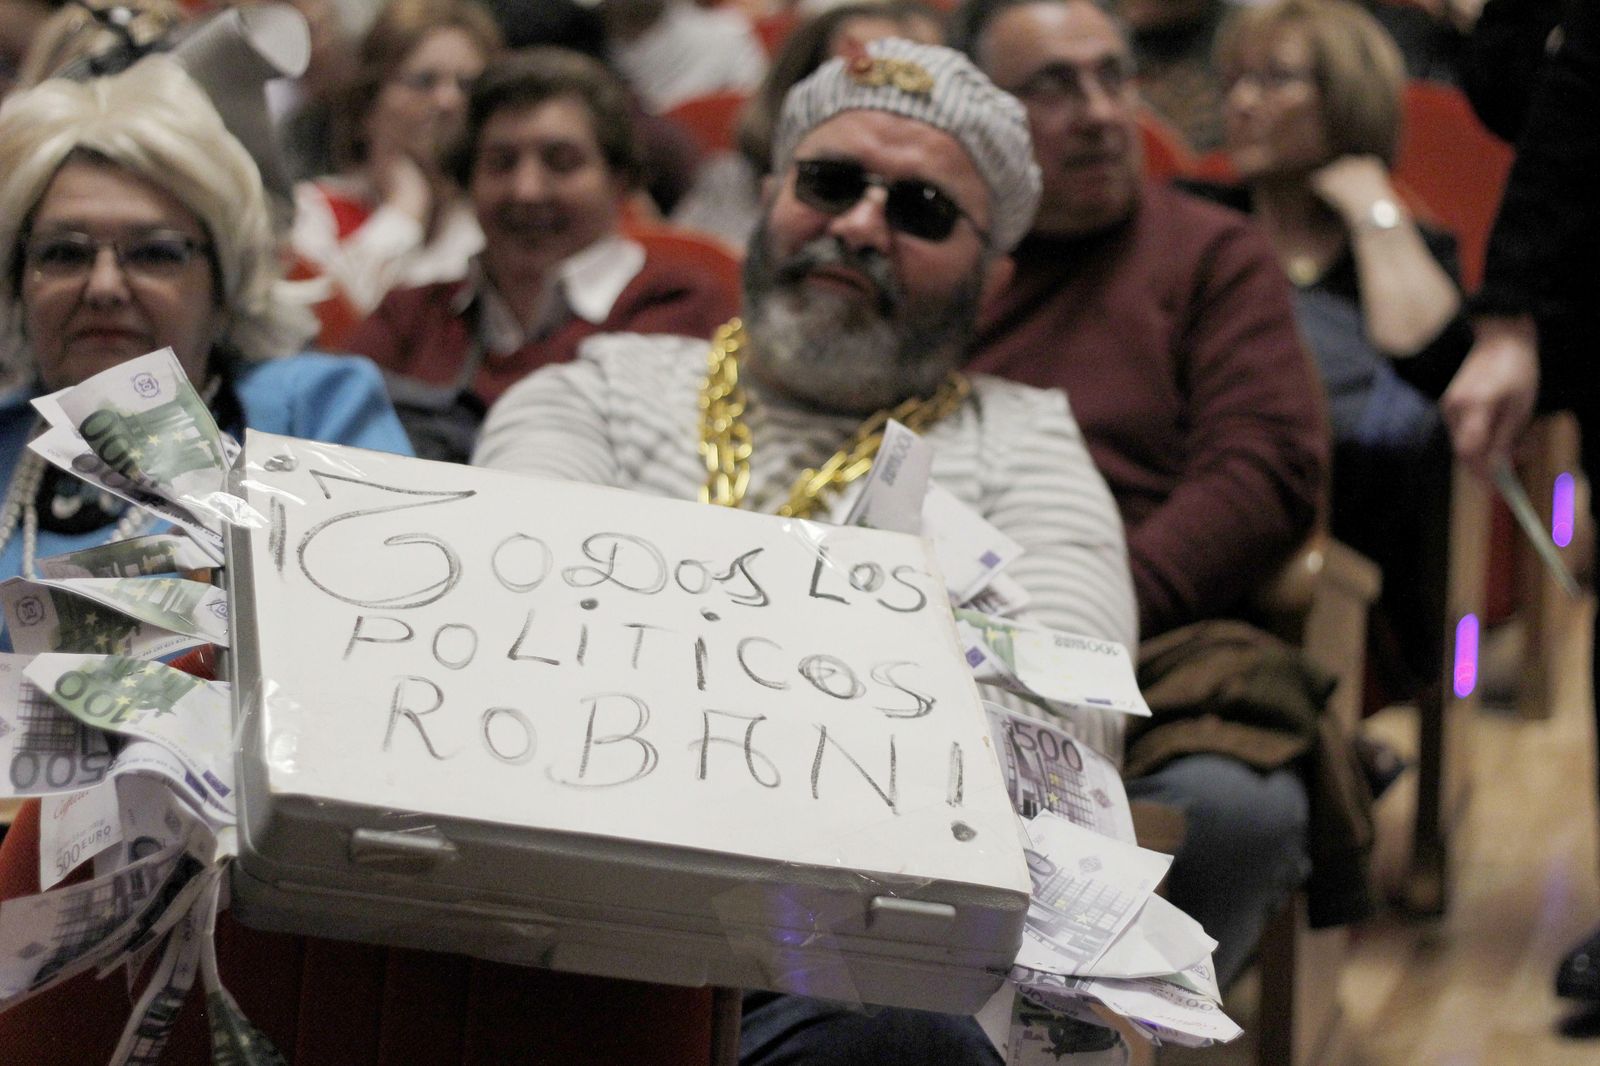 ¡TODOS LOS
POLÍTICOS
ROBAN!
100
100
500
500 EURO
100 EURO
500